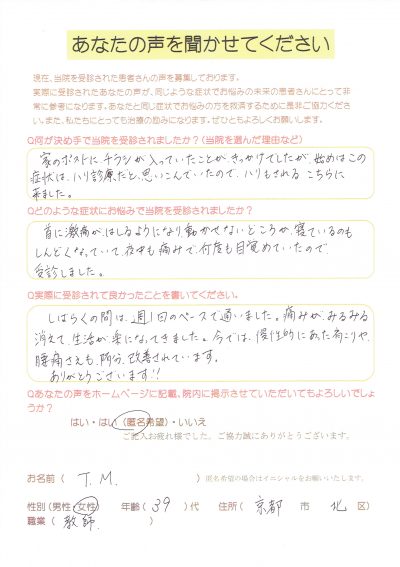 あなたの声を聞かせてください
現在、当院を受診された患者さんの声を募集しております。
実際に受診されたあなたの声が、同じような症状でお悩みの未来の患者さんにとって非
常に参考になります。あなたと同じ症状でお悩みの方を救済するために是非ご協力くださ
い。また、私たちにとっても治療の励みになります。ぜひともよろしくお願いします。
Q何が決め手で当院を受診されましたか？(当院を選んだ理由など)
家のポストに、チラシが入っていたことが、きっかけでしたが、始めはこの
症状は、ハリ診療だと、思いこんでいたので、ハリもされる こちらに
来ました。
Qどのような症状にお悩みで当院を受診されましたか？
首に激痛が、はしるようになり動かせないどころか、寝ているのも
しんどくなっていて、夜中も痛みで、何度も目覚めていたので、
受診しました。
Q実際に受診されて良かったことを書いてください。
しばらくの間は、週1回のペースで通いました。痛みが、みるみる
消えて、生活が、楽になってきました。今では、慢性的にあった肩こりや、
腰痛さえも、随分、改善されています。
ありがとうございます!!
Qあなたの声をホームページに記載、院内に掲示させていただいてもよろしいでしょ
うか？
はい・はい(匿名希望)・いいえ
ご記入お疲れ様でした。ご協力誠にありがとうございます。
お名前 ( T.M. ) 匿名希望の場合はイニシャルをお願いいたします。
性別 (男性・女性) 年齢 ( 39 ) 代 住所 ( 京都 市 北 区)
職業 ( 教師 )